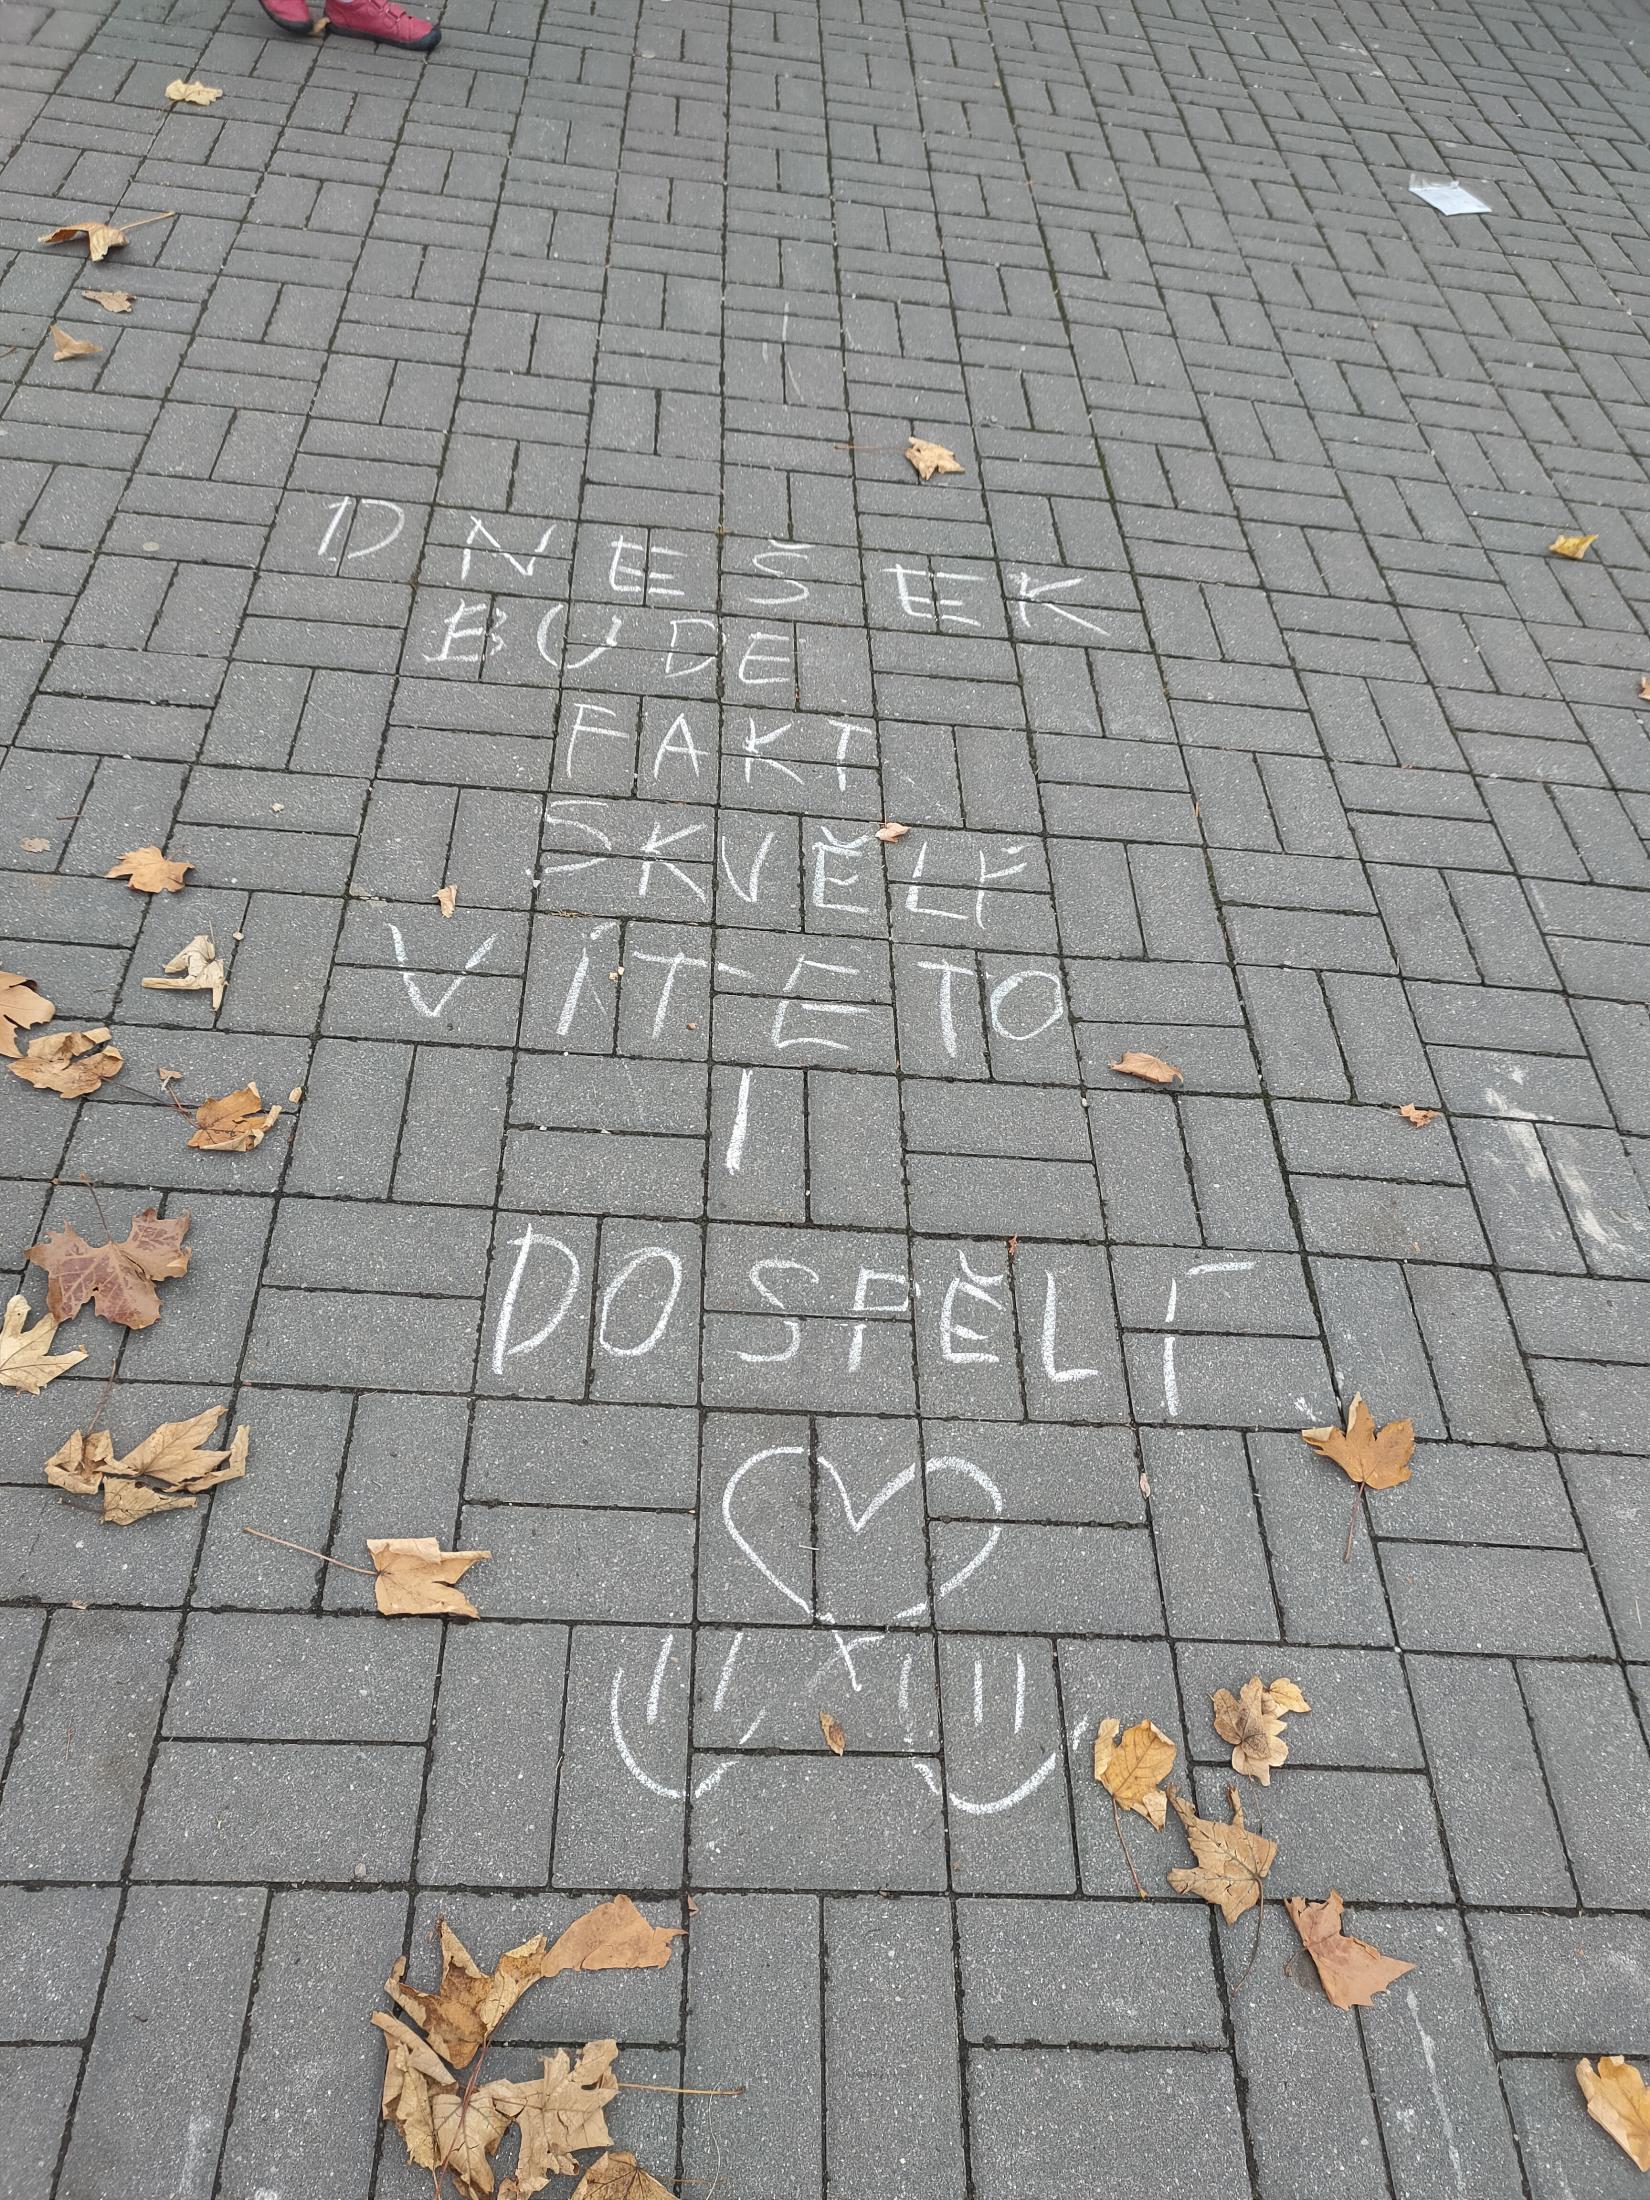 DNEŠEK
BUDE
FAKT
SKVĚLÍ
VÍTE TO
I
DOSPĚLÍ